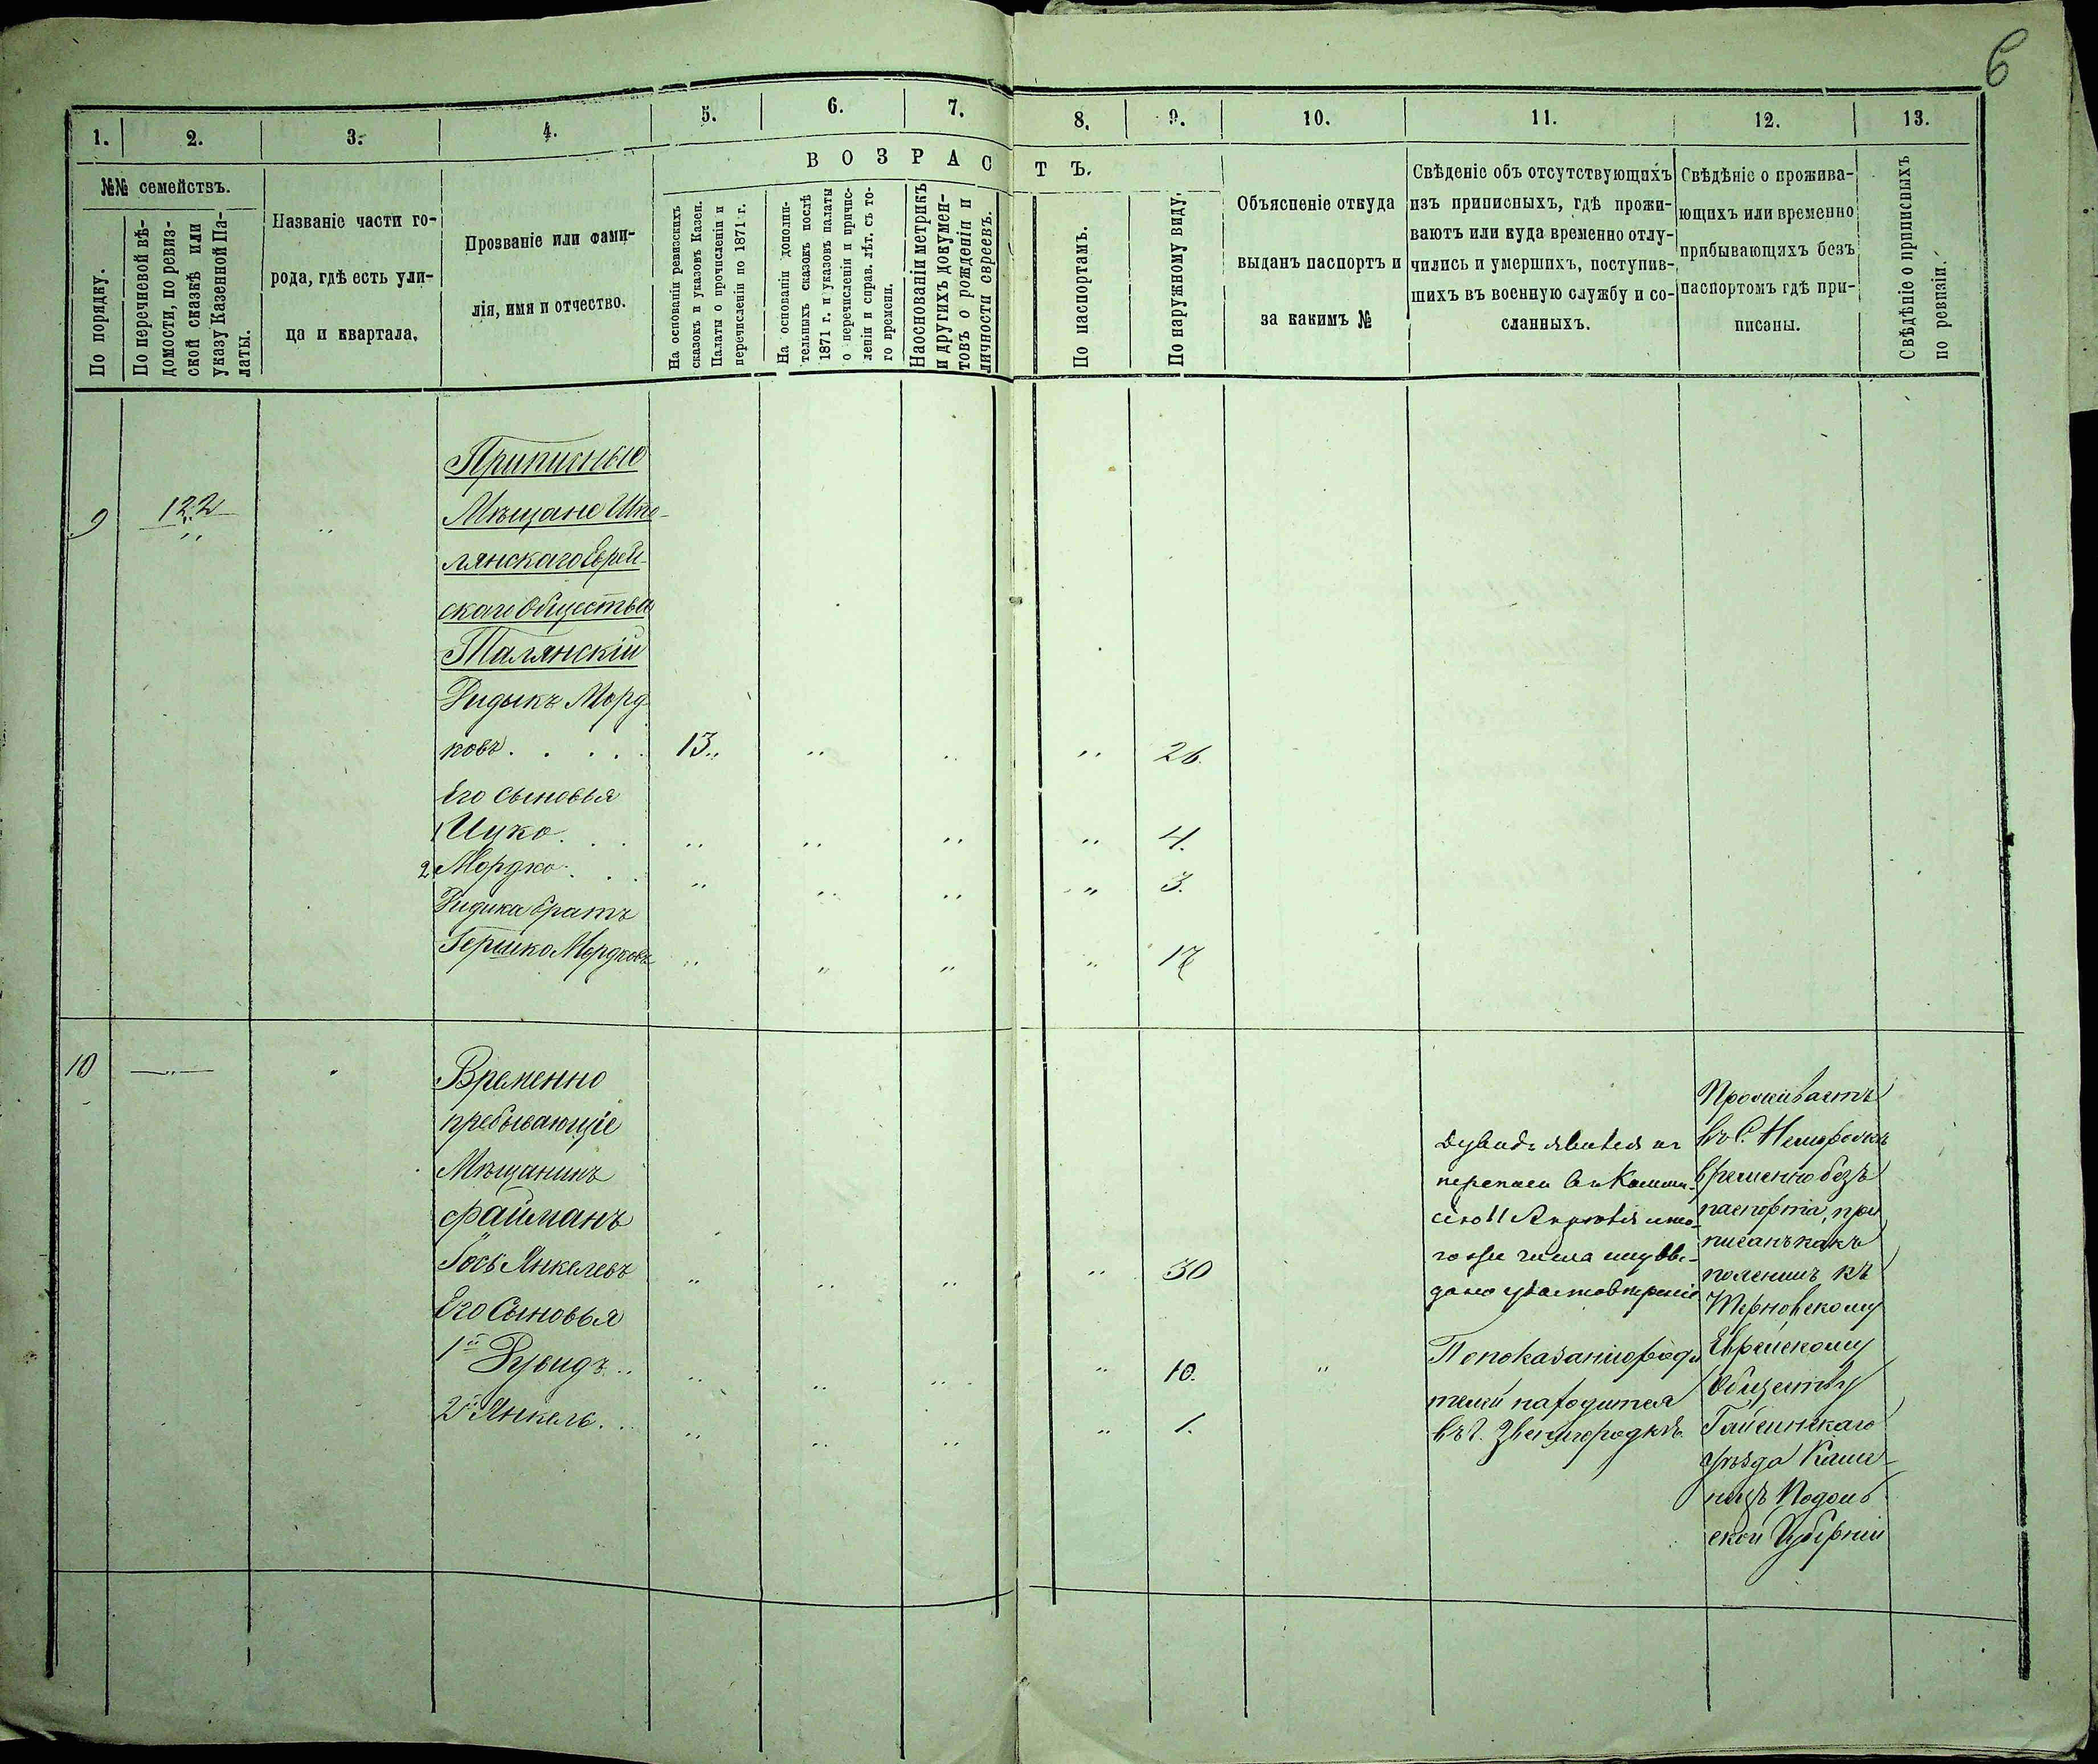 6
1. 2. 3. 4. 5. 6. 7. 8. 9. 10. 11. 12. 13.
№№ семействъ.
По порядку.
По перечневой вѣ-
домости, по ревиз-
ской сказкѣ или
указу Казенной Па-
латы.
Названіе части го-
рода, гдѣ есть ули-
ца и квартала.
Прозваніе или фами-
лія, имя и отчество.
ВОЗРАСТЪ.
На основаніи ревизскихъ
сказокъ и указовъ Казен.
Палаты о прочисленіи и
перечисленіи по 1871 г.
На основаніи дополни-
тельныхъ сказокъ послѣ
1871 г. и указовъ палаты
о перечисленіи и причис-
леніи и справ. лѣт. съ то-
го времени.
На основаніи метрикъ
и другихъ докумен-
товъ о рожденіи и
личности евреевъ.
По паспортамъ.
По наружному виду.
Объясненіе откуда
выданъ паспортъ и
за какимъ №
Свѣденіе объ отсутствующихъ
изъ приписныхъ, гдѣ прожи-
ваютъ или куда временно отлу-
чились и умершихъ, поступив-
шихъ въ военную службу и со-
сланныхъ.
Свѣдѣніе о прожива-
ющихъ или временно
прибывающихъ безъ
паспортомъ гдѣ при-
писаны.
Свѣдѣніе о приписныхъ
по ревизіи.
Приписные
9 122 " Мѣщане Шпо-
лянскаго Еврей-
скаго Общества
Талянскій
Зидыкъ Морд-
ковъ . . . . . 13 " " " " 26.
Его сыновья
1 Ицко . . . " " " " 4.
2 Мордко . . . " " " " 3.
Зидика братъ
Гершко Мордковъ " " " " 17
10 —"— Временно
пребывающіе
Мѣщанинъ
Файманъ
Іось Янкелевъ " " " " 30
Его Сыновья
1й Рувидъ . . " " " " 10. "
2й Янкель . . . " " " " 1.
перепаси въ Комми-
сію 11 Апрѣля
гоже числа ему вы-
дано
По показанію роди
телей находится
въ г. Звенигородкѣ
Проживаетъ
въ С.
временно безъ
паспорта, при
писанъ какъ
къ
Терновскому
Еврейскому
Обществу
Гайсинскаго
уѣзда Каме-
нецъ Подоль
ской Губерніи